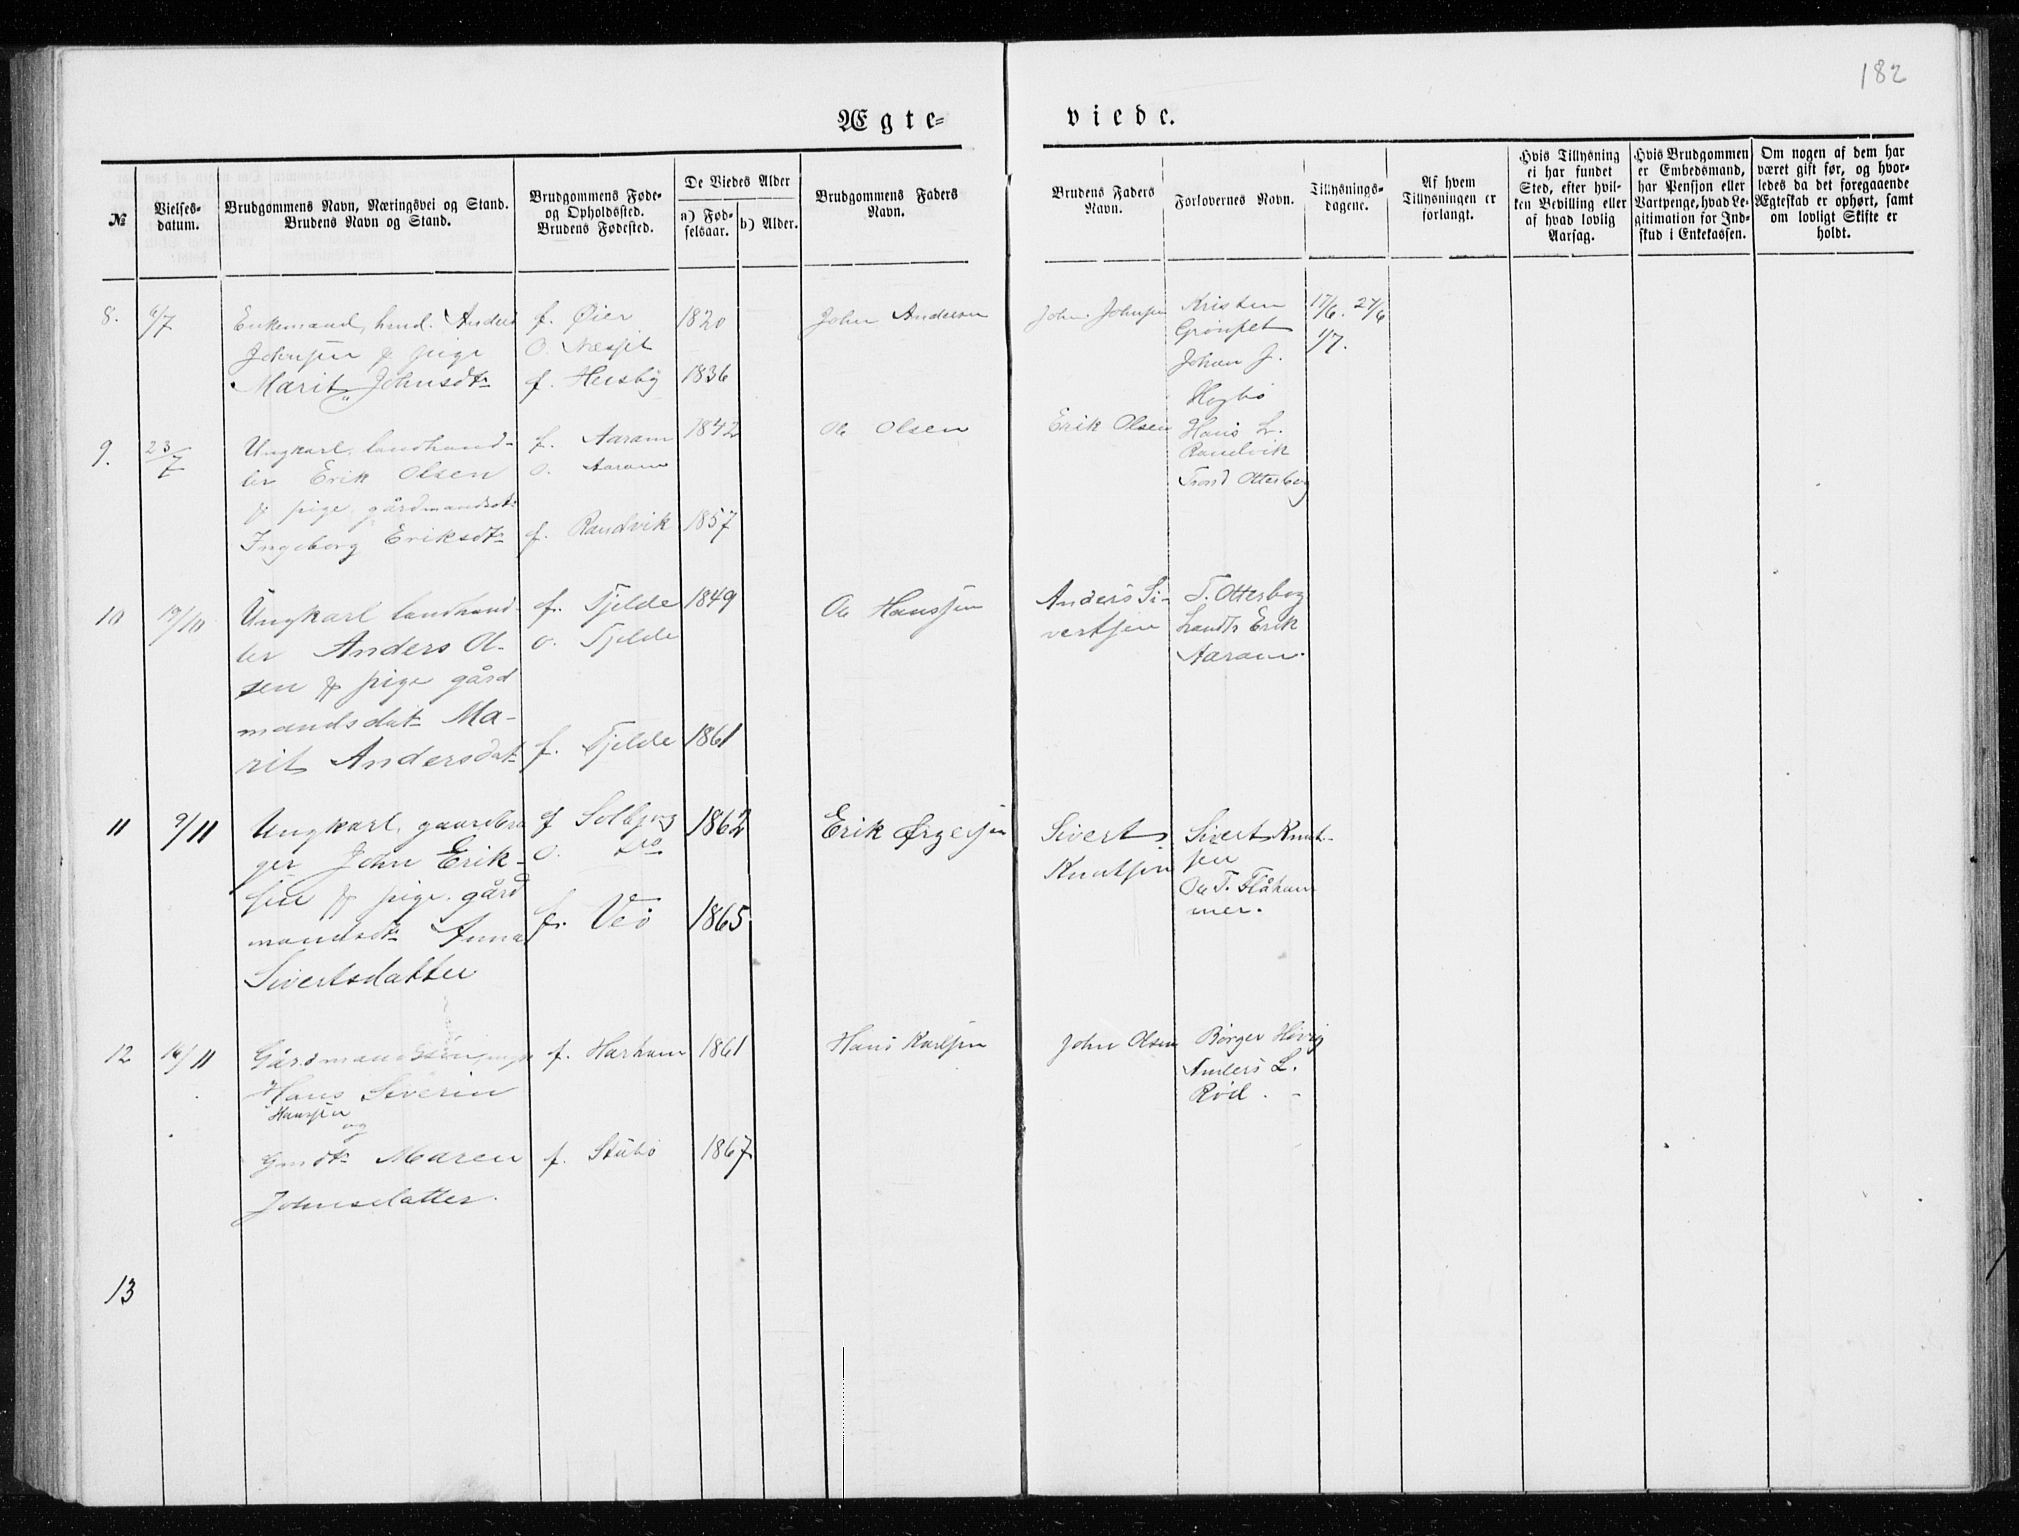 182
Ægte-
viede.
№
Vielses-
datum.
Brudgommens Navn, Næringsvei og Stand.
Brudens Navn og Stand.
Brudgommens Føde-
og Opholdssted.
Brudens Fødested.
De Viedes Alder
a) Fød-
selsaar.
b) Alder.
Brudgommens Faders
Navn.
Brudens Faders
Navn.
Forlovernes Navn.
Tillysnings-
dagene.
Af hvem
Tillysningen er
forlangt.
Hvis Tillysning
ei har fundet
Sted, efter hvil-
ken Bevilling eller
af hvad lovlig
Aarsag.
Hvis Brudgommen
er Embedsmand,
har Pension eller
Vartpenge, hvad Le-
gitimation for Ind-
skud i Enkekassen.
Om nogen af dem har
været gift før, og hvor-
ledes da det foregaaende
Ægteskab er ophørt, samt
om lovligt Skifte er
holdt.
8.
6/7
Enkemand, hmd. Anders
Johnsen & pige
Marit Johnsdtr
f. Øier
o. Næsjet
f. Heisby
1820
1836
John Andersen
John Johnsen
Kristen
Grønset
Johan J.
Hagbø
17/6. 27/6
1/7.
9.
23/7
Ungkarl, landhand-
ler Erik Olsen
& pige, gårdmandsdtr
Ingeborg Eriksdtr
f. Aaram
o. Aaram
f. Randvik
1842
1857
Ole Olsen
Erik Olsen
Hans L.
Randvik
Trond Otterbog
10
19/10
Ungkarl landhand-
ler Anders Ol-
sen & pige gård
mandsdatr Ma-
rit Andersdatr
f. Tjelde
o. Tjelde
f. Tjelde
1849
1861
Ole Hanssen
Anders Si-
vertsen
T. Otterbog
Landh. Erik
Aaram.
11
9/11
Ungkarl, gaardbru
ger John Erik-
sen & pige, gård
mandsdtr Anna
Sivertsdatter
f Solbjørg
o. do
f. Veø
1862
1865
Erik Ørgersen
Sivert
Knutsen
Sivert Knut-
sen
Ole T. Flåham
mer.
12
16/11
Gårdmandssøn, ungk
Hans Severin
Hanssen
og
Gmdtr Maren
Johnsdatter.
f. Harham
f. Stubø
1861
1867
Hans Karlsen
John Olsen
Børger Høvig
Anders L.
Rød.
13